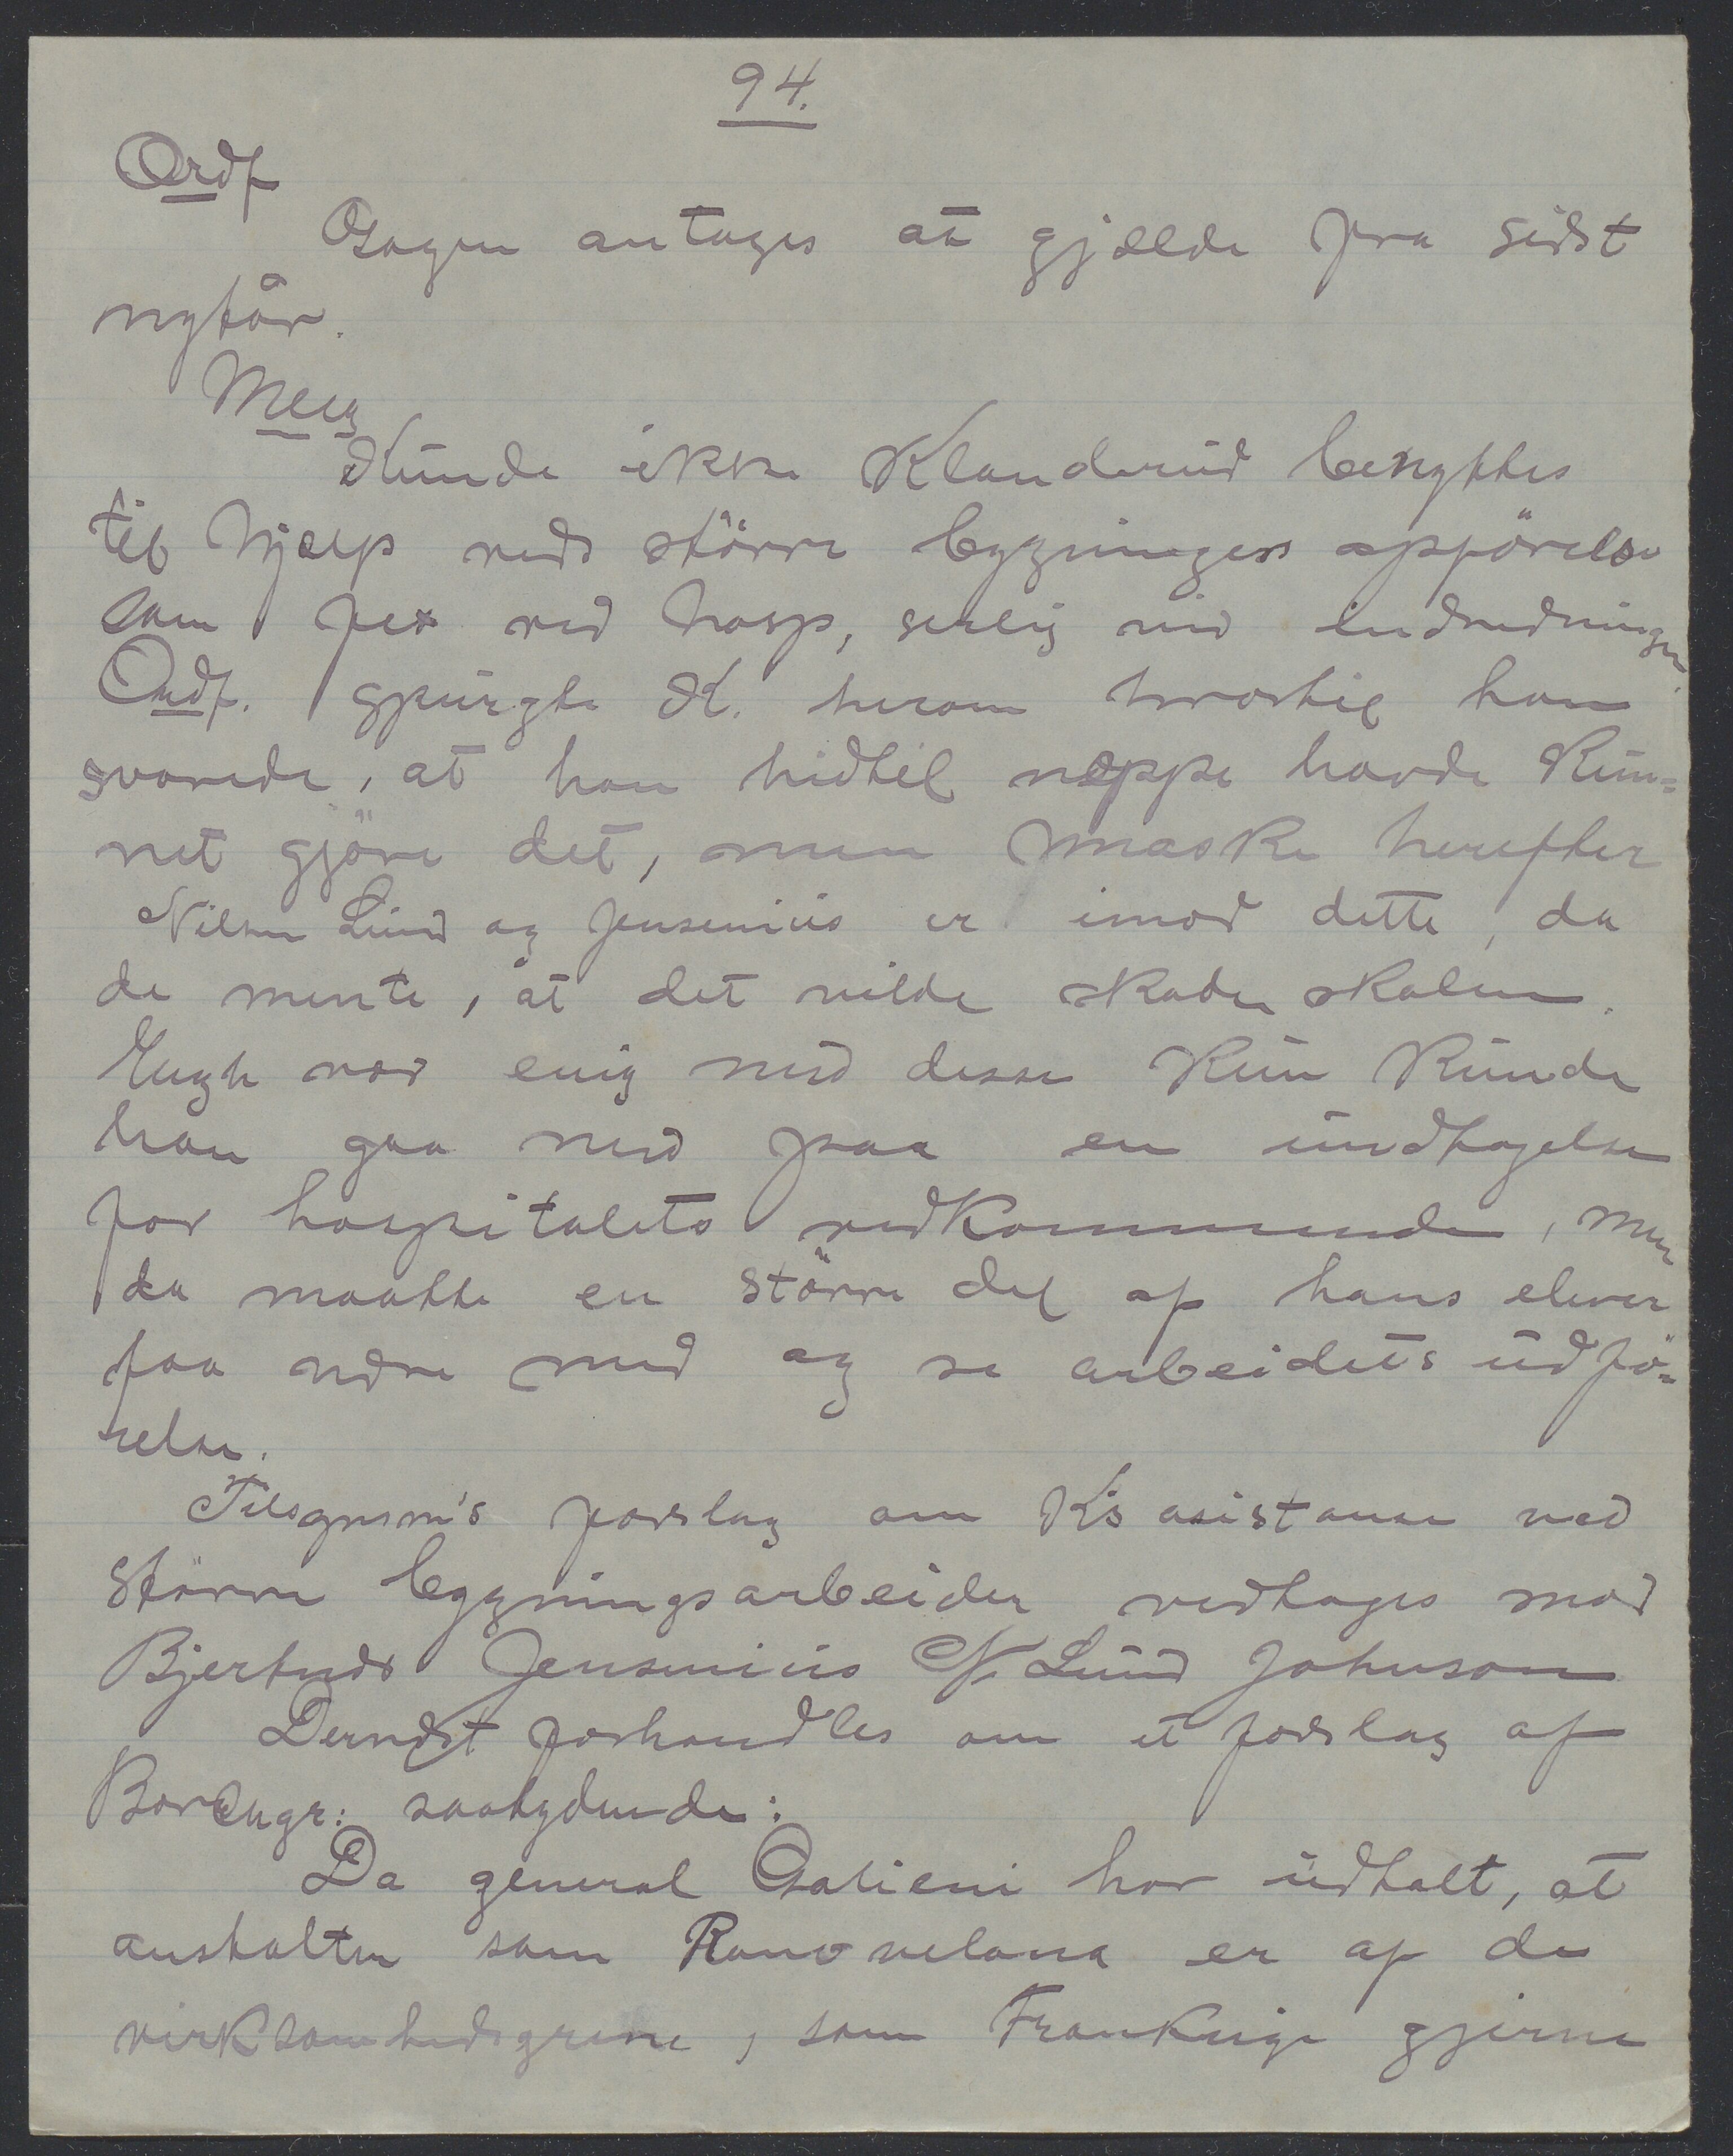 94.
Ordf
Gagen antages at gjælde fra sidst
nytår.
Meeg
Kunde ikke Klanderud benyttes
til hjælp ved större bygningers opförelse
som fex ved hosp, serlig ved indredningen.
Ordf. spurgte K. herom hvortil han
svarede, at han hidtil neppe havde kun=
net gjöre det, men maaske herefter
Nilsen Lund og Jensenius er imod dette, da
de mente, at det vilde skade skolen.
Engh var enig med desse kun kunde
han gaa med paa en undtagelse
for hospitalets vedkommende, men
da maatte en större del af hans elever
faa være med og se arbeidets udfö=
relse.
forslag om K's asistanse ved
större bygningsarbeider vedtages mod
Bjertnæs Jensenius N. Lund Johnson
Dernæst forhandles om et forslag af
Borchgr: saalydende:
Da general Galieni har udtalt, at
anstalter som Ranovelona er af de
virksomhedsgrene, som Frankrige gjerne